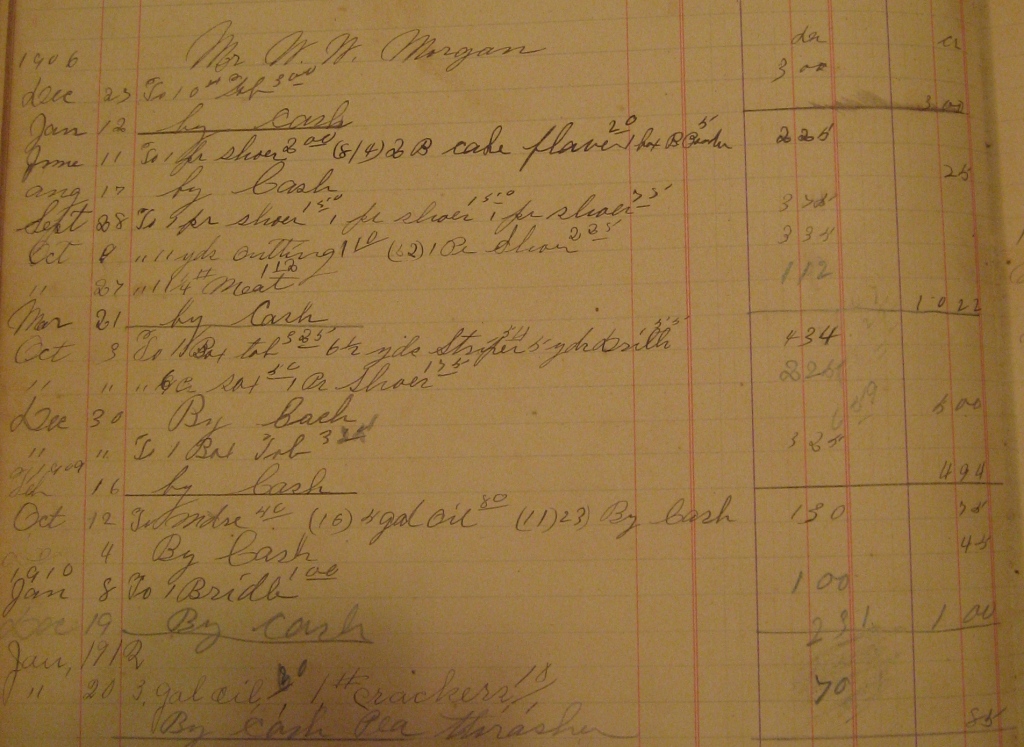 Mr W. W. Morgan dr cr
1906
Dec 23 To 10 # Tob 3 00 3 00
3 00
Jan 12 by Cash
June 11 To 1 pr shoes 2 00 (8/4) 2 B cake flaver 20 1 box B 5 2 25
aug 17 by Cash 25
Sept 28 To 1 pr shoes 1 50 1 pr shoes 1 50 1 pr shoes 75 3 75
Oct 9 " 11 yds cutting 1 10 (62) 1 Pr Shoes 2 25 3 35
" 27 " 14 # Meat 1 12 1 12
10 22
Mar 21 by Cash
Oct 3 To 1 Box tob 3 25 6 1/2 yds Striper 54 5 yds drilli 55 4 34
" " " 6 pr sox 50 1 Pr Shoes 1 75 2 25
Dec 30 By Cash 5 00
" " To 1 Box Tob 3 25 3 25
4 94
Feb 16 by Cash
Oct 12 To mdse 40 (16) 4 gal oil 80 (11) 23) By Cash 1 30 75
4 By Cash 45
1910
Jan 8 To 1 Bridle 1 00 1 00
Dec 19 By Cash 2 31 1 00
Jan, 1912
" 20 3, gal oil, 1 # crackers, 18 70
By Cash Pea thrasher 85